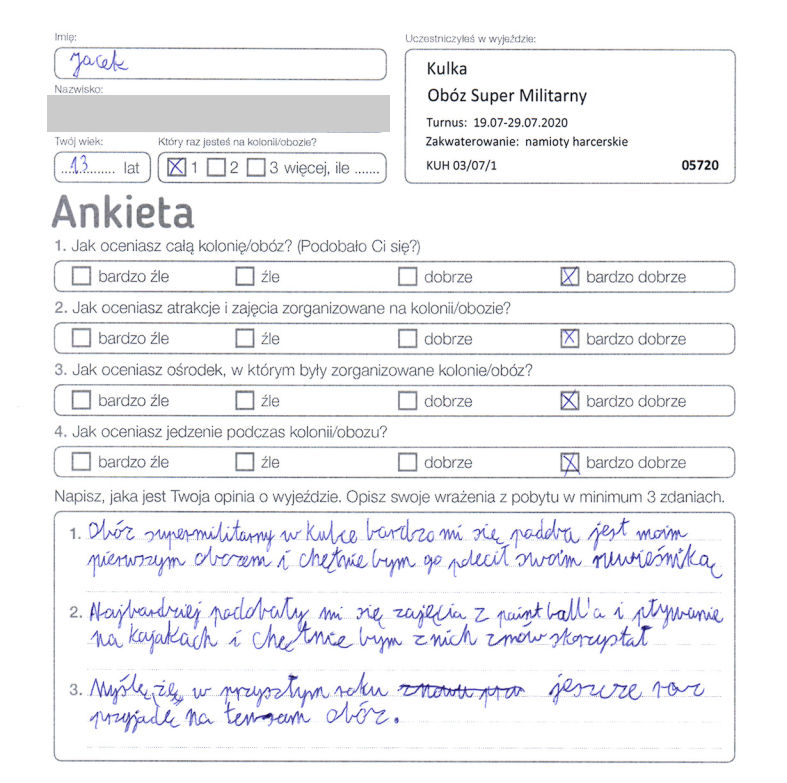 Imię:
Jacek
Nazwisko:
Twój wiek:
13 lat
Który raz jesteś na kolonii/obozie?
1 2 3 więcej, ile .......
Uczestniczyłeś w wyjeździe:
Kulka
Obóz Super Militarny
Turnus: 19.07-29.07.2020
Zakwaterowanie: namioty harcerskie
KUH 03/07/1 05720
Ankieta
1. Jak oceniasz całą kolonię/obóz? (Podobało Ci się?)
bardzo źle źle dobrze bardzo dobrze
2. Jak oceniasz atrakcje i zajęcia zorganizowane na kolonii/obozie?
bardzo źle źle dobrze bardzo dobrze
3. Jak oceniasz ośrodek, w którym były zorganizowane kolonie/obóz?
bardzo źle źle dobrze bardzo dobrze
4. Jak oceniasz jedzenie podczas kolonii/obozu?
bardzo źle źle dobrze bardzo dobrze
Napisz, jaka jest Twoja opinia o wyjeździe. Opisz swoje wrażenia z pobytu w minimum 3 zdaniach.
1. Obóz supermilitarny w Kulce bardzo mi się podoba jest moim
pierwszym obozem i chętnie bym go polecił swoim
2. Najbardziej podobały mi się zajęcia z paintball'a i pływanie
na kajakach i chętnie bym z nich znów skorzystał
3. Myślę, że, w przyszłym roku jeszcze raz
przyjadę na ten sam obóz.